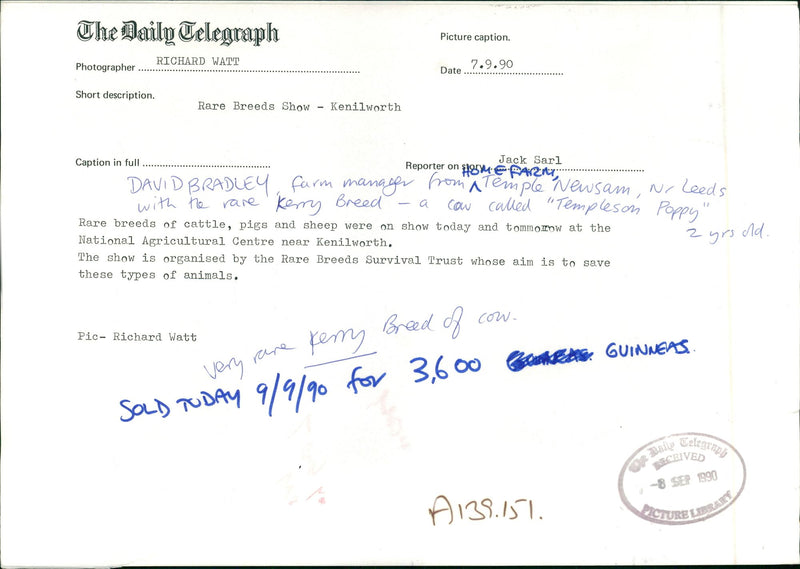 The Daily Telegraph
Picture caption.
Photographer RICHARD WATT
Date 7.9.90
Short description.
Rare Breeds Show - Kenilworth
Caption in full
Reporter on story Jack Sarl
DAVID BRADLEY, farm manager from HOME FARM, Temple Newsam, Nr Leeds
with the rare Kerry Breed - a cow called "Templeson Poppy"
2 yrs old.
Rare breeds of cattle, pigs and sheep were on show today and tommorow at the
National Agricultural Centre near Kenilworth.
The show is organised by the Rare Breeds Survival Trust whose aim is to save
these types of animals.
Pic- Richard Watt
very rare Kerry Breed of cow.
SOLD TODAY 9/9/90 for 3,600 GUINNEAS.
The Daily Telegraph
RECEIVED
-8 SEP 1990
PICTURE LIBRARY
A139.151.